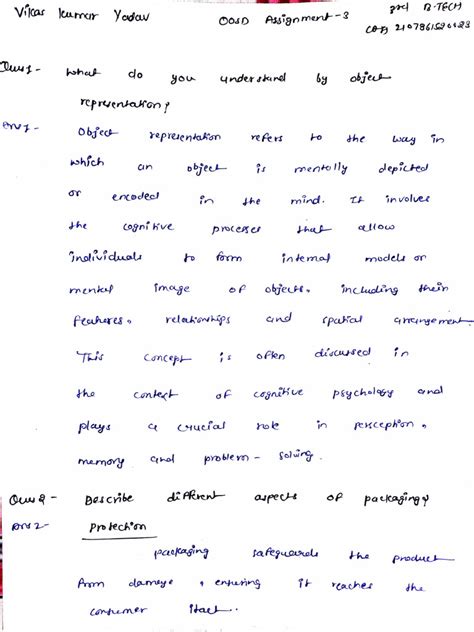 Vikas Kumar Yadav OOSD Assignment-3 3rd B.TECH
Ques1- What do you understand by object
representation?
Ans1- Object representation refers to the way in
which an object is mentally depicted
or encoded in the mind. It involves
the cognitive processes that allow
individuals to form internal models or
mental image of objects, including their
features, relationships and spatial arrangement.
This concept is often discussed in
the context of cognitive psychology and
plays a crucial role in perception,
memory and problem-solving.
Ques2- Describe different aspects of packaging?
Ans2- Protection
packaging safeguards the product
from damage, ensuring it reaches the
consumer itact.